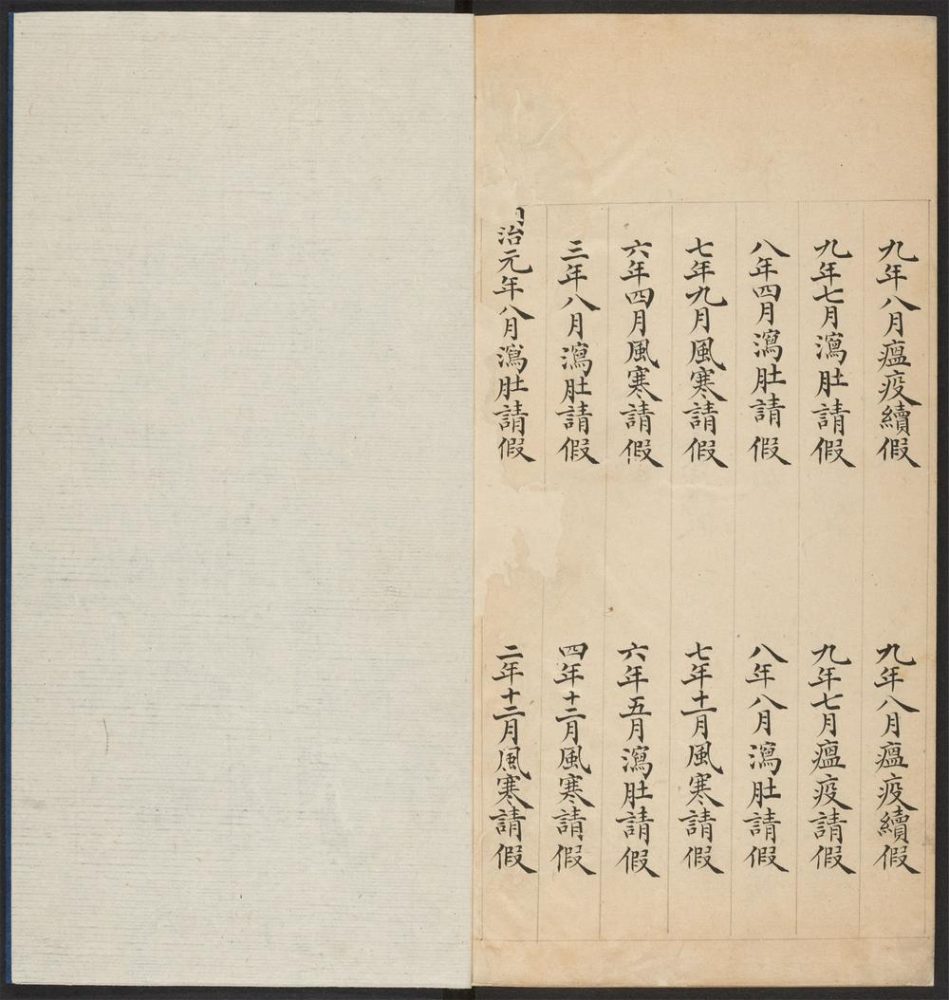 治元年八月瀉肚請假
二年十二月風寒請假
三年八月瀉肚請假
四年十二月風寒請假
六年四月風寒請假
六年五月瀉肚請假
七年九月風寒請假
七年十一月風寒請假
八年四月瀉肚請假
八年八月瀉肚請假
九年七月瀉肚請假
九年七月瘟疫請假
九年八月瘟疫續假
九年八月瘟疫續假